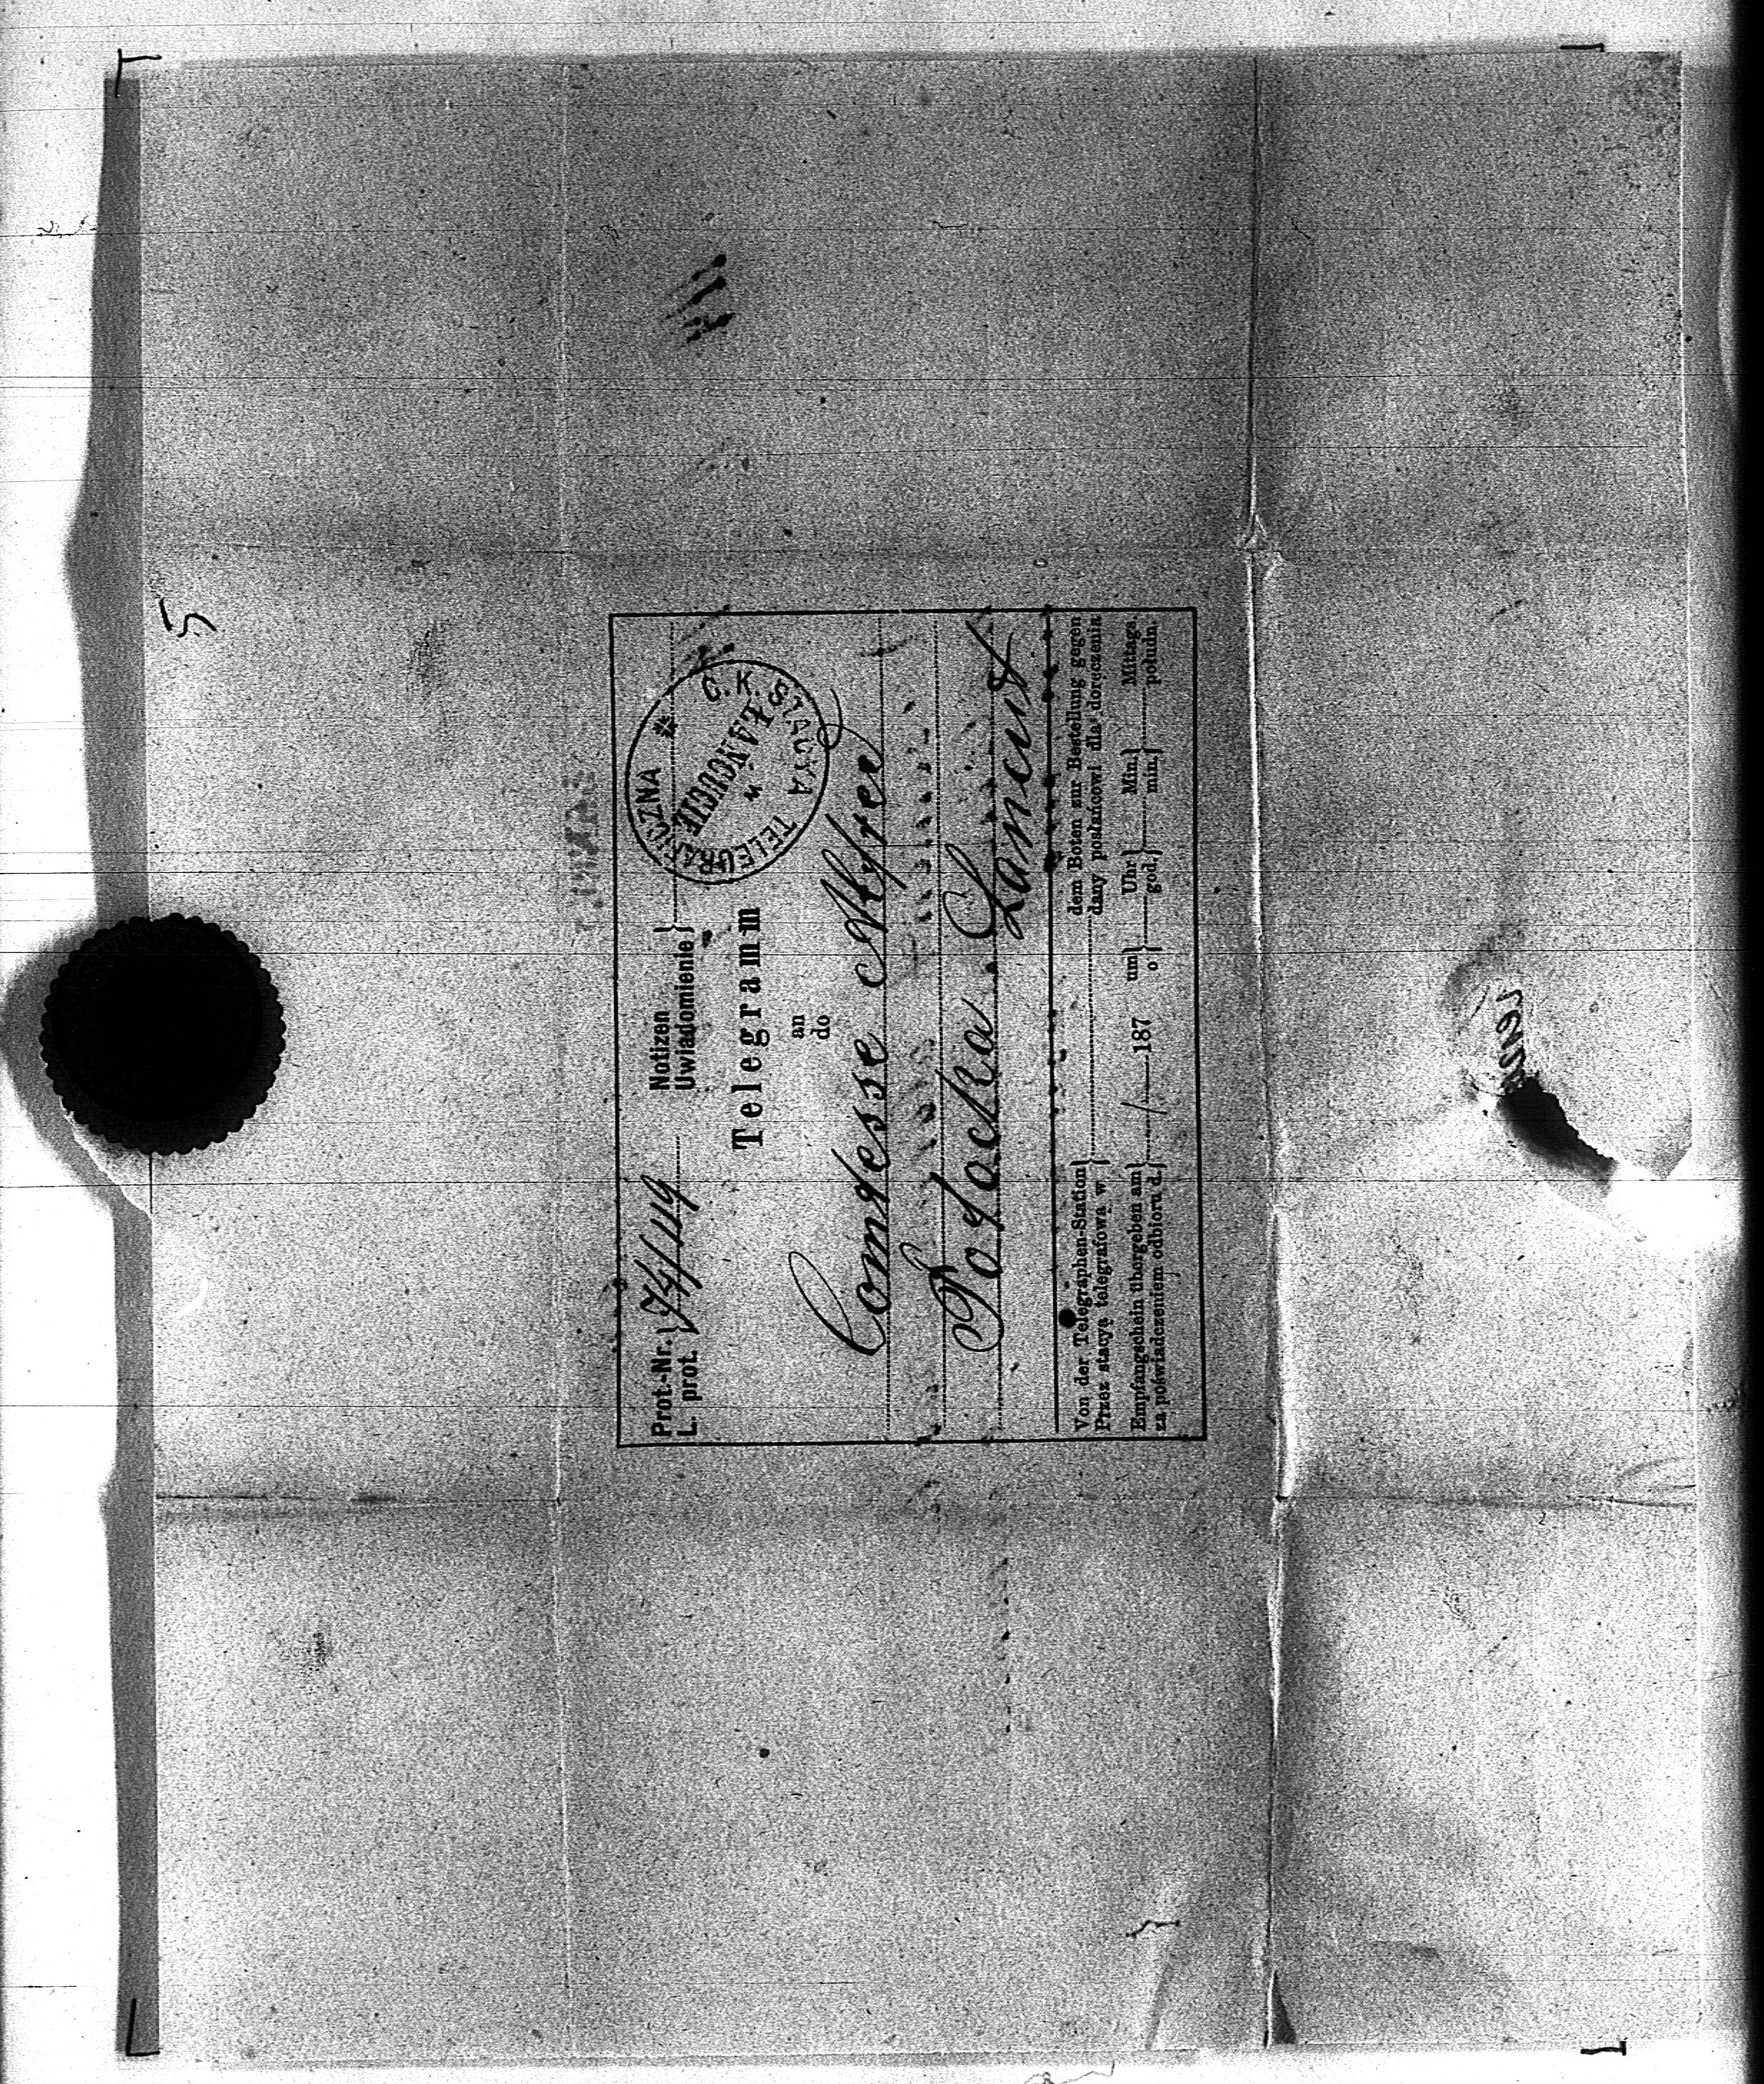 5
Prot.-Nr. } 74/119
L. prot. }
Notizen }
Uwiadomienie }
C. K. STACYA TELEGRAFICZNA *
w
ŁAŃCUCIE
Telegramm
an
do
Comtesse Alfred
Potocka Lancut
Von der Telegraphen-Station } dem Boten zur Bestellung gegen
Przez stacyę telegrafowa w } dany posłańcowi dla doręczenia
Empfangschein übergeben am } / 187 um } Uhr } Min. } Mittags.
za poświadczeniem odbioru d. } o } god. } min. } połudn.